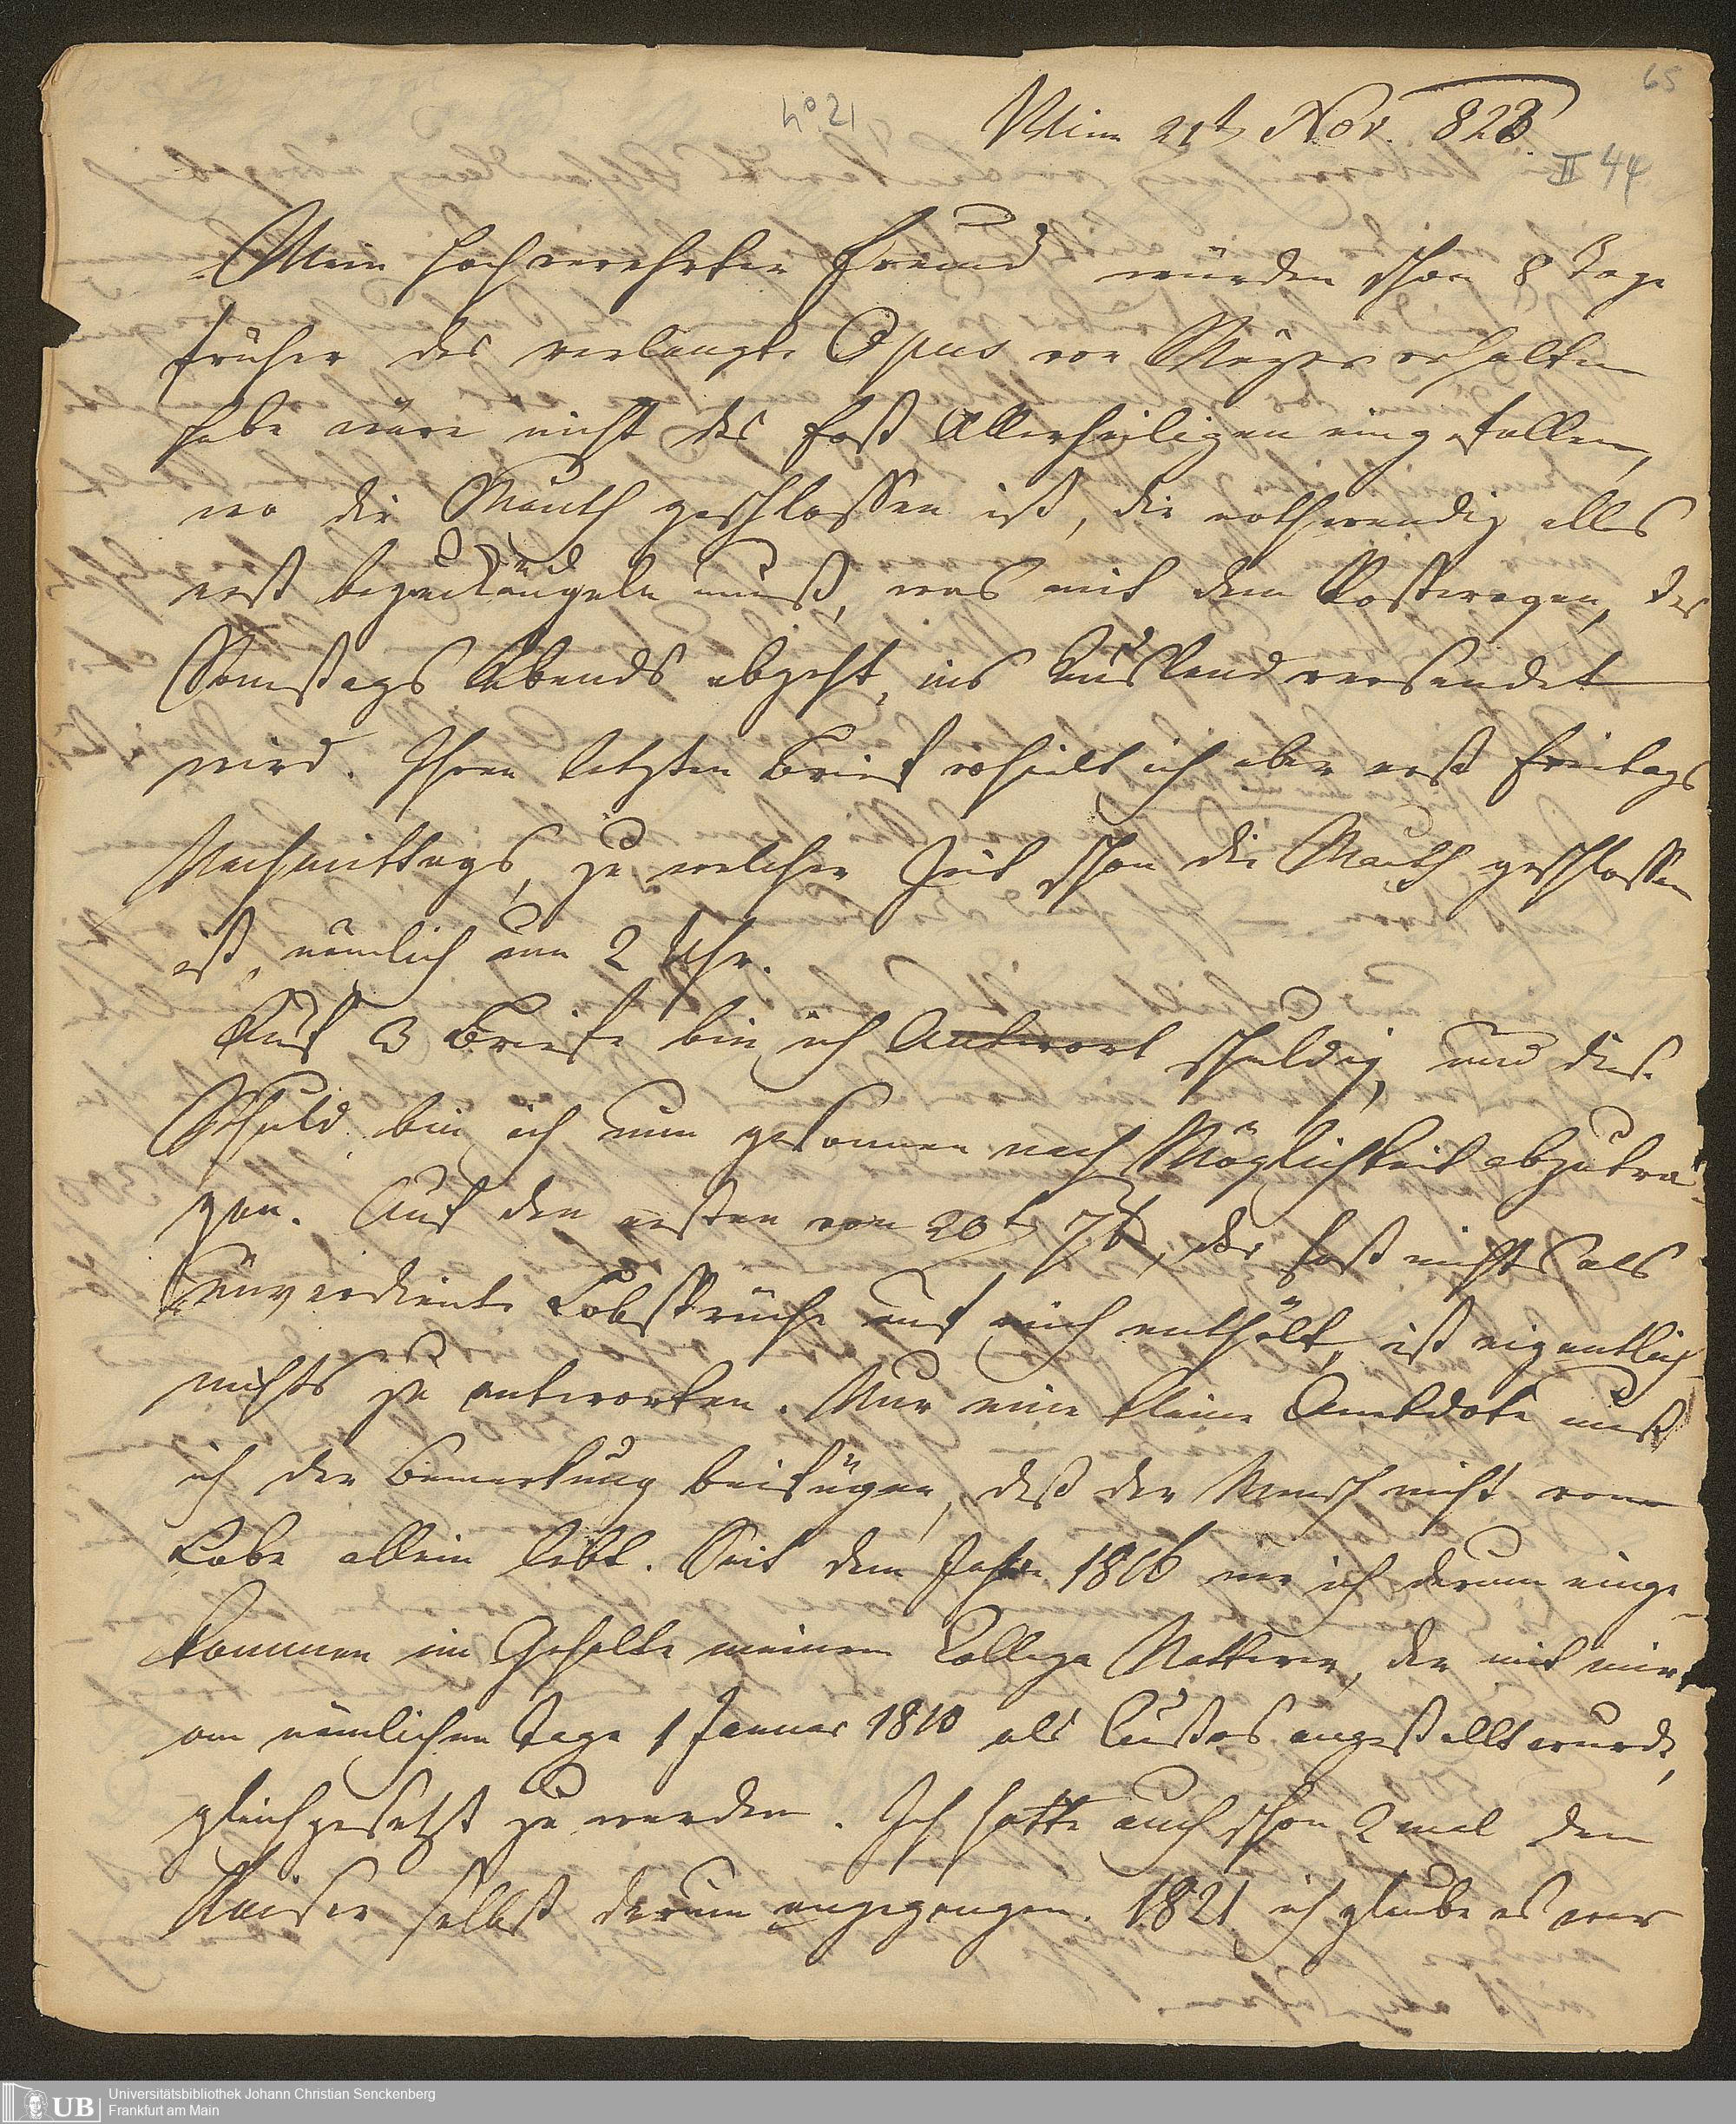 65
No 21
Wien 21t Nov. 823
II 44
Mein hochverehrter Freund würden schon 8 Tage
früher das verlangte Opus von Meyer erhalten
habe wäre nicht das Fest Allerheiligen eingefallen,
wo die Mauth geschlossen ist, die nothwendig alles
erst muß, was mit dem Postwagen, der
Samstags Abends abgeht, ins Ausland versendet
wird. Ihren letzten Brief erhielt ich aber erst Freitags
Nachmittags, zu welcher Zeit schon die Mauth geschlossen
ist, nämlich um 2 Uhr.
Auf 3 Briefe bin ich Antwort schuldig, und diese
Schuld bin ich nun gesonnen nach Möglichkeit abzutra-
gen. Auf den ersten vom 20t 7b, der fast nichts als
unverdiente Lobsprüche auf mich enthält, ist eigentlich
nichts zu antworten. Nur eine kleine Anekdote muß
ich der Bemerkung beifügen, daß der Mensch nicht vom
Lobe allein lebt. Seit dem Jahre 1816 war ich darum einge-
kommen im Gehalte meinem Collega Natterer, der mit mir
am nämlichen Tage 1 Januar 1810 als Custos angestellt wurde,
gleichgesetzt zu werden. Ich hatte auch schon 2 mal den
Kaiser selbst darum angegangen. 1821 ich glaube es war
UB
Universitätsbibliothek Johann Christian Senckenberg
Frankfurt am Main